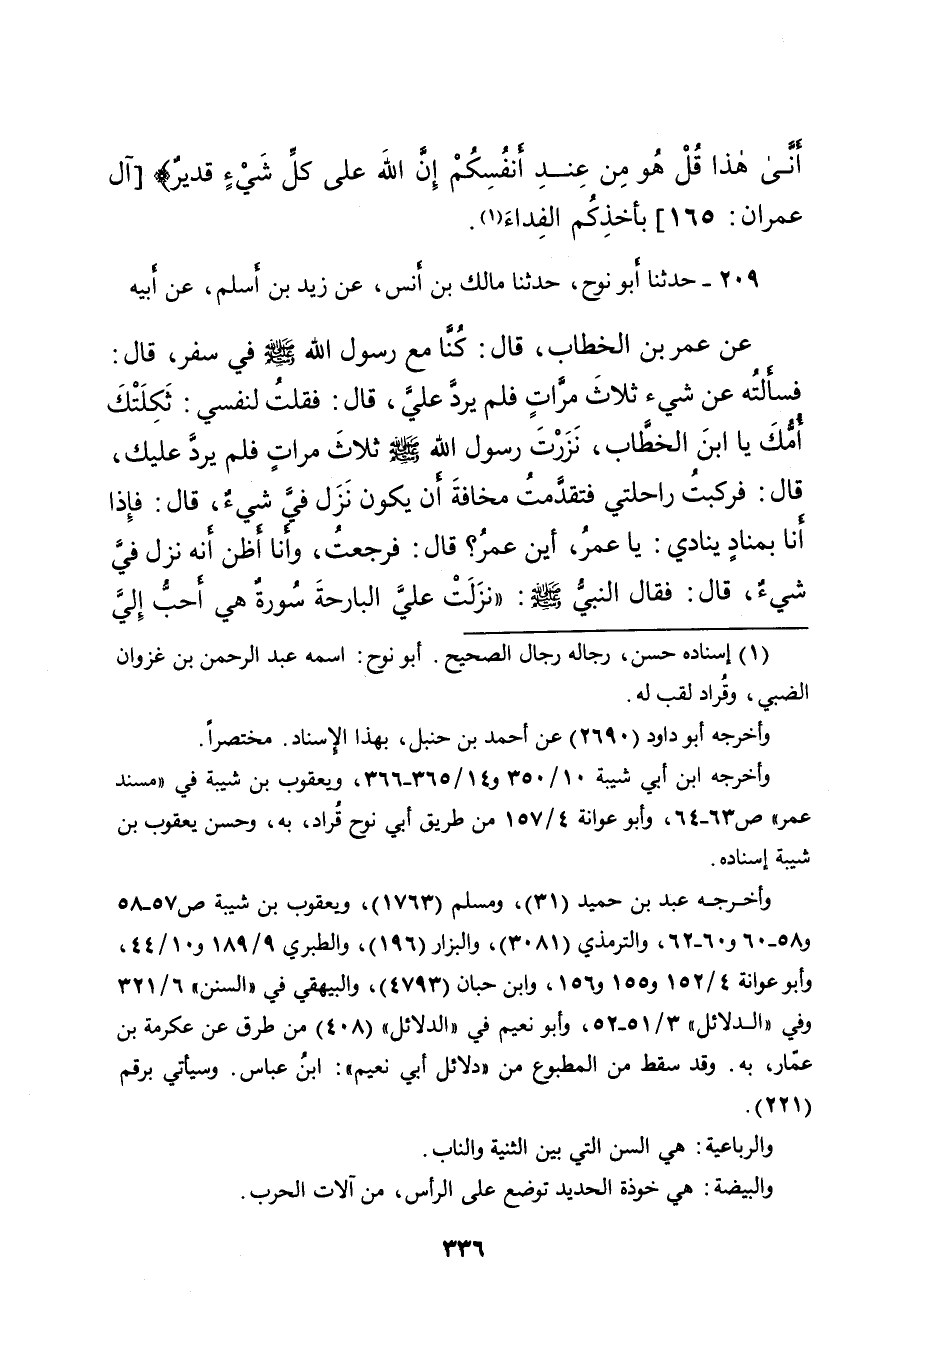 أَنَّىٰ هٰذا قُلْ هُو مِن عِنــدِ أَنفُسِكُمْ إِنَّ اللهَ على كلِّ شَيْءٍ قديرٌ﴾ [آل
عمران: ١٦٥] بأخذِكُم الفِداءَ(١).
٢٠٩ ـ حدثنا أبو نوح، حدثنا مالك بن أنس، عن زيد بن أسلم، عن أبيه
عن عمر بن الخطاب، قال: كُنَّا مع رسول الله ﷺ في سفر، قال:
فسألتُه عن شيء ثلاثَ مرَّاتٍ فلم يردَّ عليَّ، قال: فقلتُ لنفسي: ثَكِلَتْكَ
أُمُّكَ يا ابنَ الخطَّاب، نَزَرْتَ رسول الله ﷺ ثلاثَ مراتٍ فلم يردَّ عليك،
قال: فركبتُ راحلتي فتقدَّمتُ مخافةَ أن يكون نَزَل فيَّ شيءٌ، قال: فإذا
أنا بمنادٍ ينادي: يا عمرُ، أين عمرُ؟ قال: فرجعتُ، وأنا أظن أنه نزل فيَّ
شيءٌ، قال: فقال النبيُّ ﷺ: «نزَلَتْ عليَّ البارحةَ سُورةٌ هي أَحبُّ إليَّ
(١) إسناده حسن، رجاله رجال الصحيح. أبو نوح: اسمه عبد الرحمن بن غزوان
الضبي، وقُراد لقب له.
وأخرجه أبو داود (٢٦٩٠) عن أحمد بن حنبل، بهذا الإسناد. مختصراً.
وأخرجه ابن أبي شيبة ٣٥٠/١٠ و٣٦٥/١٤-٣٦٦، ويعقوب بن شيبة في «مسند
عمر» ص٦٣-٦٤، وأبو عوانة ١٥٧/٤ من طريق أبي نوح قُراد، به، وحسن يعقوب بن
شيبة إسناده.
وأخـرجـه عبد بن حميد (٣١)، ومسلم (١٧٦٣)، ويعقوب بن شيبة ص٥٧-٥٨
و٥٨-٦٠ و٦٠-٦٢، والترمذي (٣٠٨١)، والبزار (١٩٦)، والطبري ١٨٩/٩ و٤٤/١٠،
وأبو عوانة ١٥٢/٤ و١٥٥ و١٥٦، وابن حبان (٤٧٩٣)، والبيهقي في «السنن» ٣٢١/٦
وفي «الـدلائل» ٥١/٣-٥٢، وأبو نعيم في «الدلائل» (٤٠٨) من طرق عن عكرمة بن
عمّار، به. وقد سقط من المطبوع من «دلائل أبي نعيم»: ابنُ عباس. وسيأتي برقم
(٢٢١).
والرباعية: هي السن التي بين الثنية والناب.
والبيضة: هي خوذة الحديد توضع على الرأس، من آلات الحرب.
٣٣٦